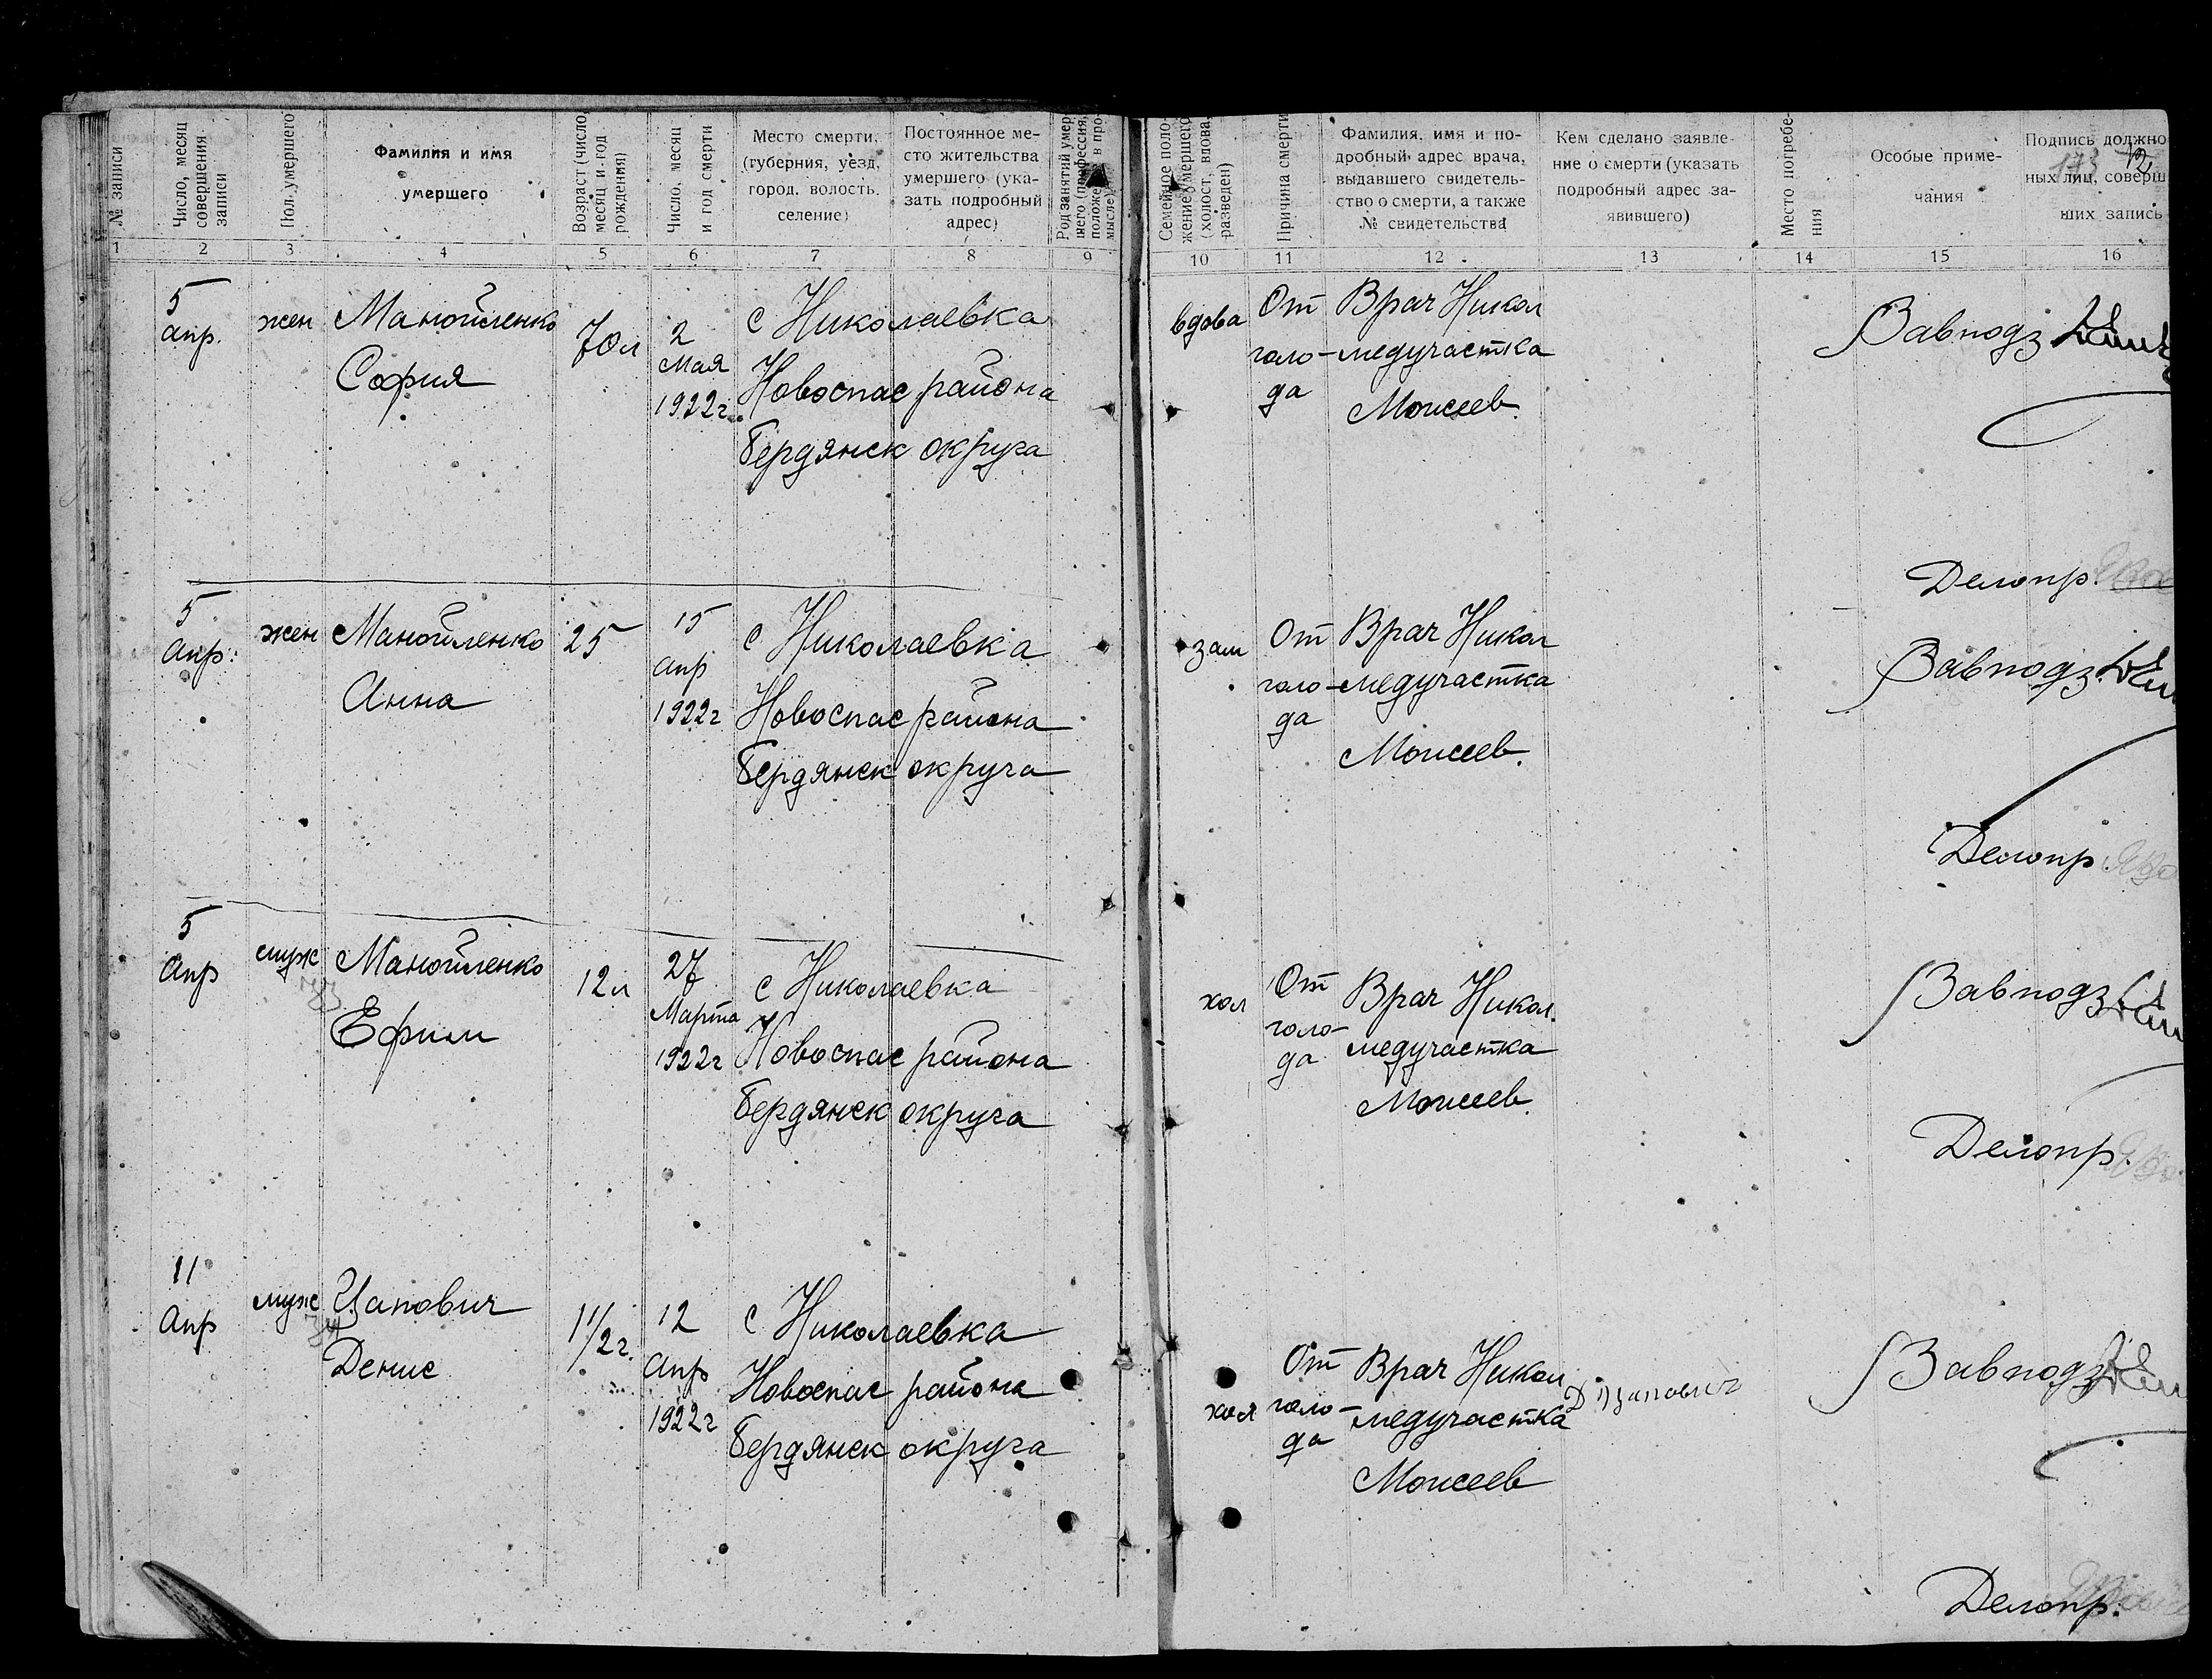 № записи
Число, месяц
совершения
записи
Пол умершего
Фамилия и имя
умершего
Возраст (число,
месяц и год
рождения)
Число, месяц
и год смерти
Место смерти,
(губерния, уезд,
город, волость,
селение)
Постоянное ме-
сто жительства
умершего (ука-
зать подробный
адрес)
Род занятий умер-
шего (профессия,
положе в про-
мысле)
Семейное поло-
жение умершего
(холост, вдова,
разведен)
Причина смерти
Фамилия, имя и по-
дробный адрес врача,
выдавшего свидетель-
ство о смерти, а также
№ свидетельства
Кем сделано заявле-
ние о смерти (указать
подробный адрес за-
явившего)
Место погребе-
ния
Особые приме-
чания
Подпись должно
ных лиц, соверш
ших запись
173
1 2 3 4 5 6 7 8 9 10 11 12 13 14 15 16
5
апр.
жен
Манойленко
София
70 л
2
Мая
1922 г.
с Николаевка
Новоспас района
Бердянск округа
вдова
От
голо-
да
Врач Никол
медучастка
Моисеев.
Завподз
Делопр.
5
Апр.
жен
Манойленко
Анна
25
15
апр
1922 г
с Николаевка
Новоспас района
Бердянск округа
зам
От
голо-
да
Врач Никол
медучастка
Моисеев.
Завподз.
Делопр.
5
Апр
муж
Манойленко
Ефим
12 л
27
Марта
1922 г
с Николаевка
Новоспас района
Бердянск округа
хол
От
голо-
да
Врач Никол.
медучастка
Моисеев.
Завподз
Делопр.
11
Апр
муж
Цапович
Денис
1 1/2 г.
12
Апр
1922 г
с Николаевка
Новоспас района
Бердянск округа
хол
От
голо-
да
Врач Никол
медучастка
Моисеев
Д Цапович
Завподз
Делопр.